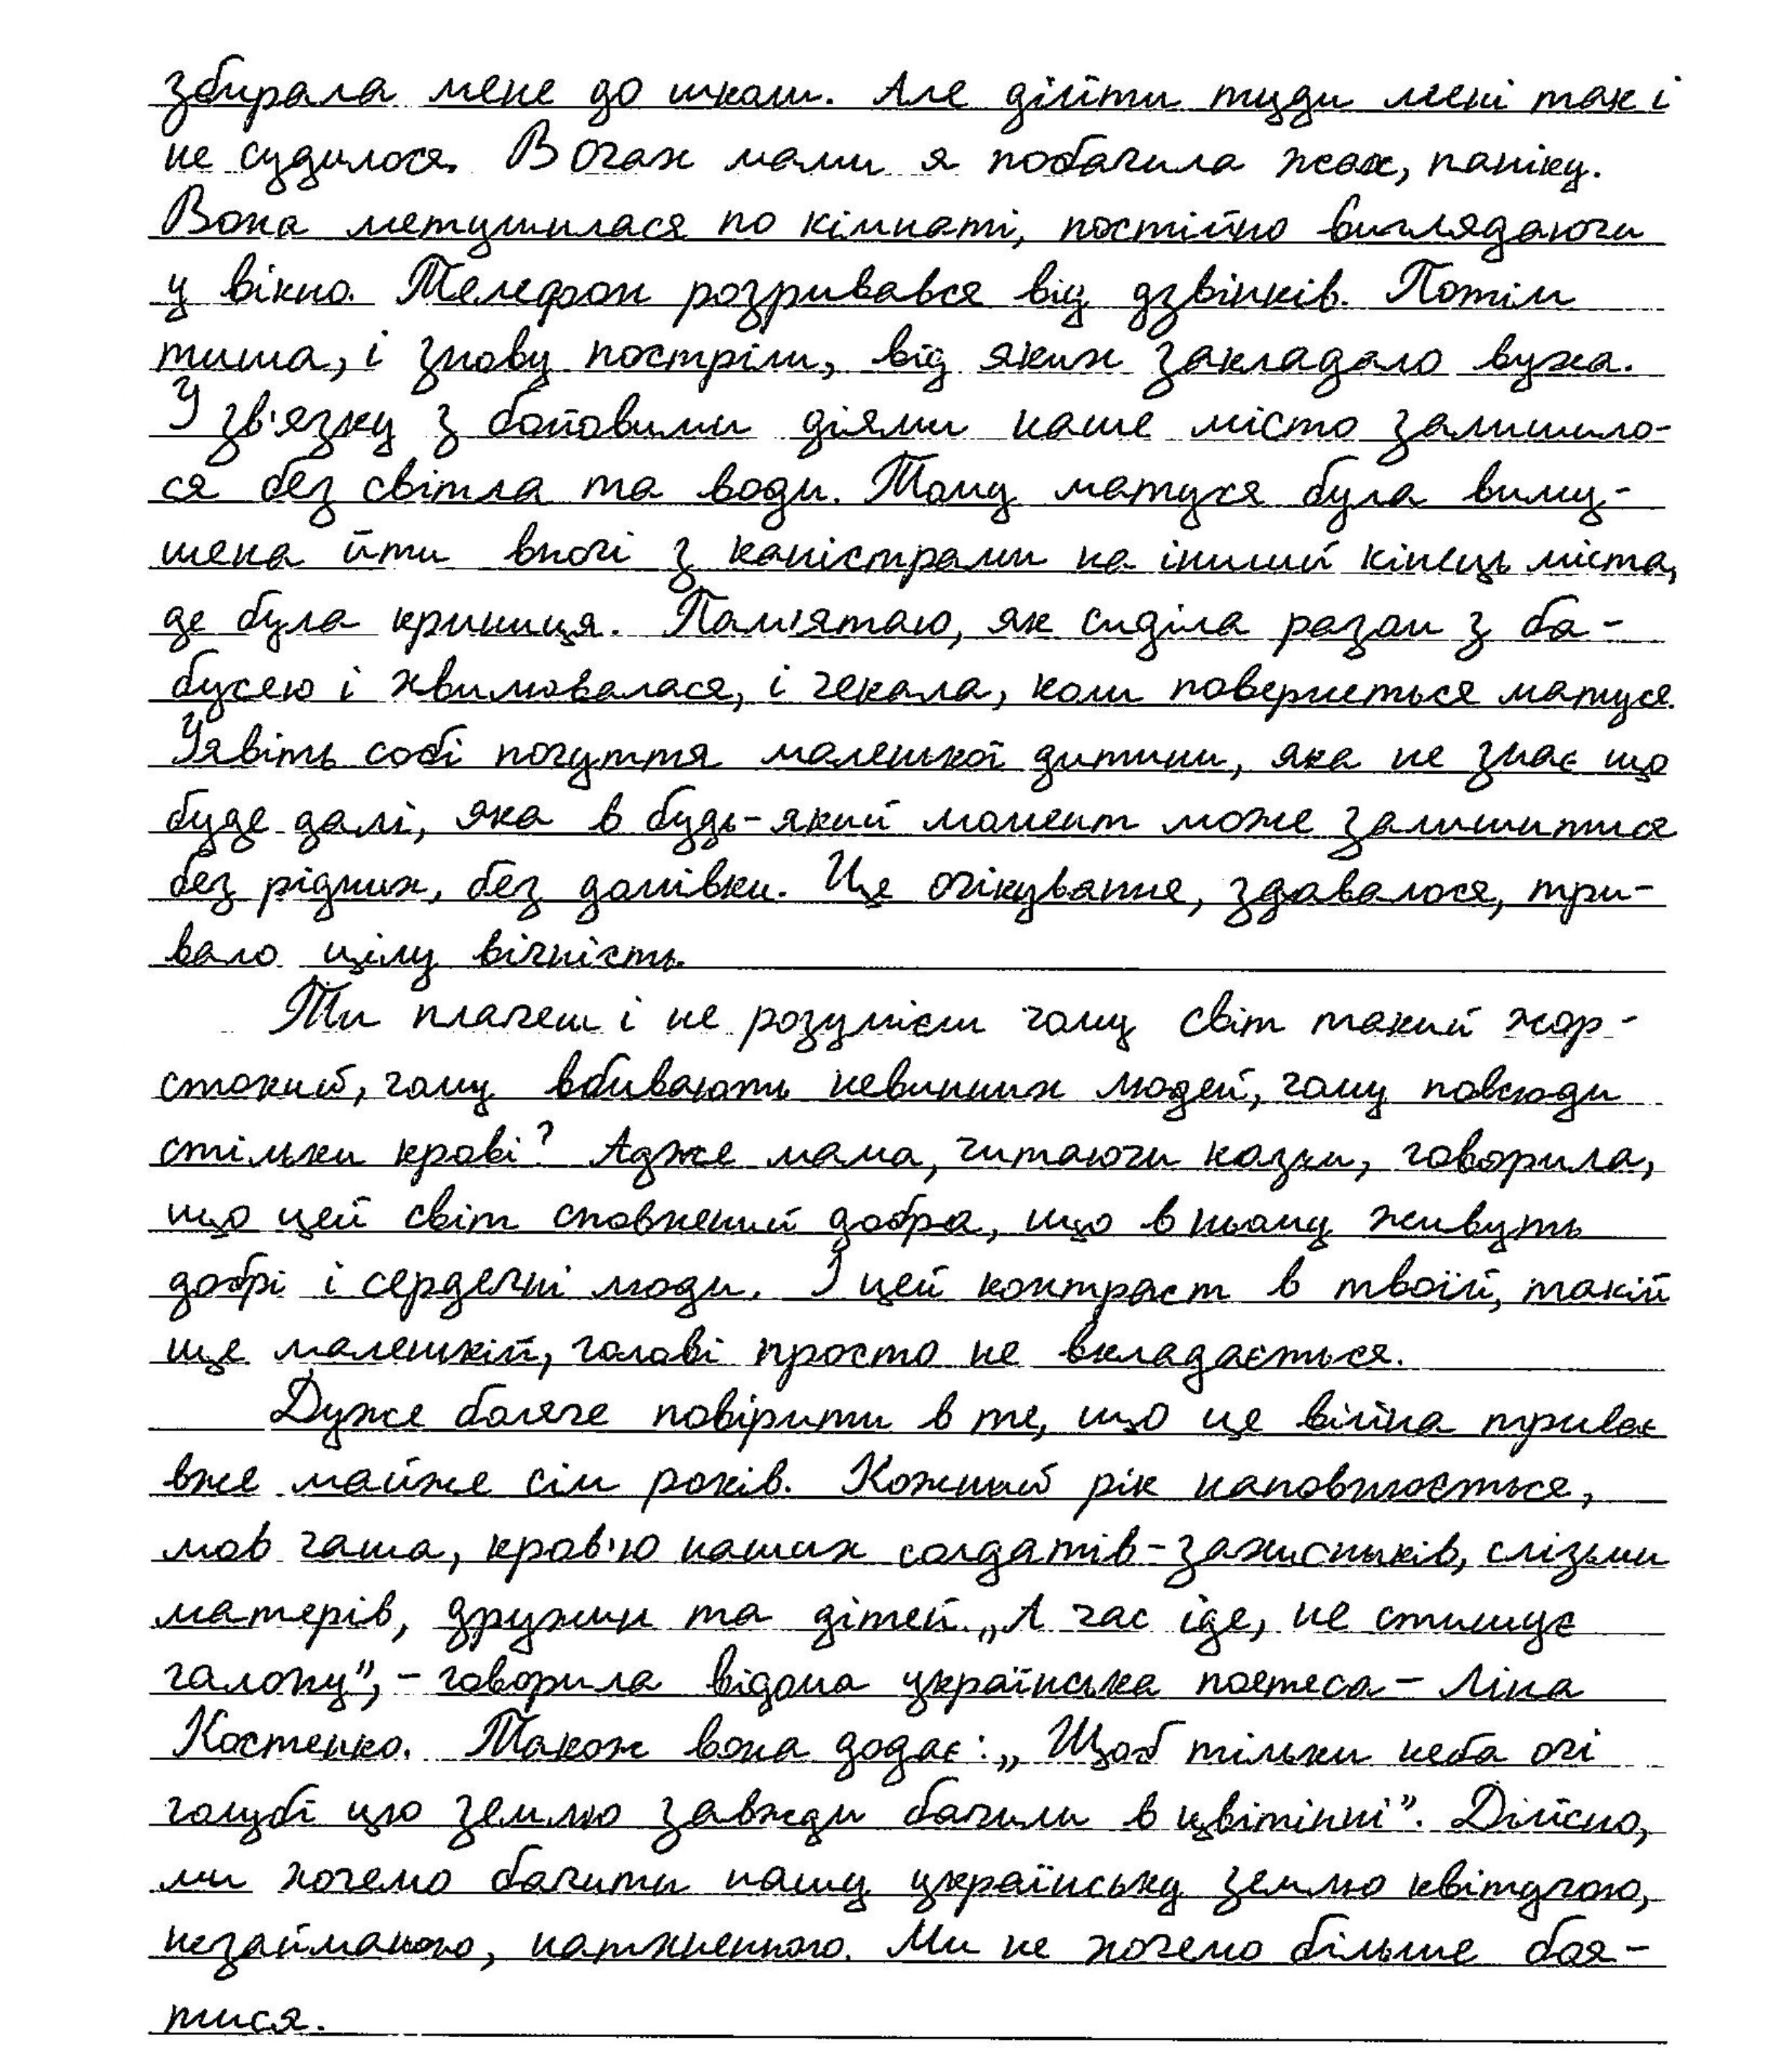 збирала мене до школи. Але дійти туди мені так і
не судилося. В очах мами я побачила жах, паніку.
Вона метушилася по кімнаті, постійно виглядаючи
у вікно. Телефон розривався від дзвінків. Потім
тиша, і знову постріли, від яких закладало вуха.
У зв'язку з бойовими діями наше місто залишило-
ся без світла та води. Тому матуся була виму-
шена йти вночі з каністрами на інший кінець міста,
де була криниця. Пам'ятаю, як сиділа разом з ба-
бусею і хвилювалася, і чекала, коли повернеться матуся.
Уявіть собі почуття маленької дитини, яка не знає що
буде далі, яка в будь-який момент може залишитися
без рідних, без домівки. Це очікування, здавалося, три-
вало цілу вічність.
Ти плачеш і не розумієш чому світ такий жор-
стокий, чому вбивають невинних людей, чому повсюди
стільки крові? Адже мама, читаючи казки, говорила,
що цей світ сповнений добра, що в ньому живуть
добрі і сердечні люди. І цей контраст в твоїй, такій
ще маленькій, голові просто не вкладається.
Дуже боляче повірити в те, що це війна триває
вже майже сім років. Кожний рік наповнюється,
мов чаша, кров'ю наших солдатів-захисників, слізьми
матерів, дружин та дітей. „А час іде, не стишує
галопу”, - говорила відома українська поетеса - Ліна
Костенко. Також вона додає: „Щоб тільки неба очі
голубі цю землю завжди бачили в цвітінні”. Дійсно,
ми хочемо бачити нашу українську землю квітучою,
незайманою, натхненною. Ми не хочемо більше боя-
тися.